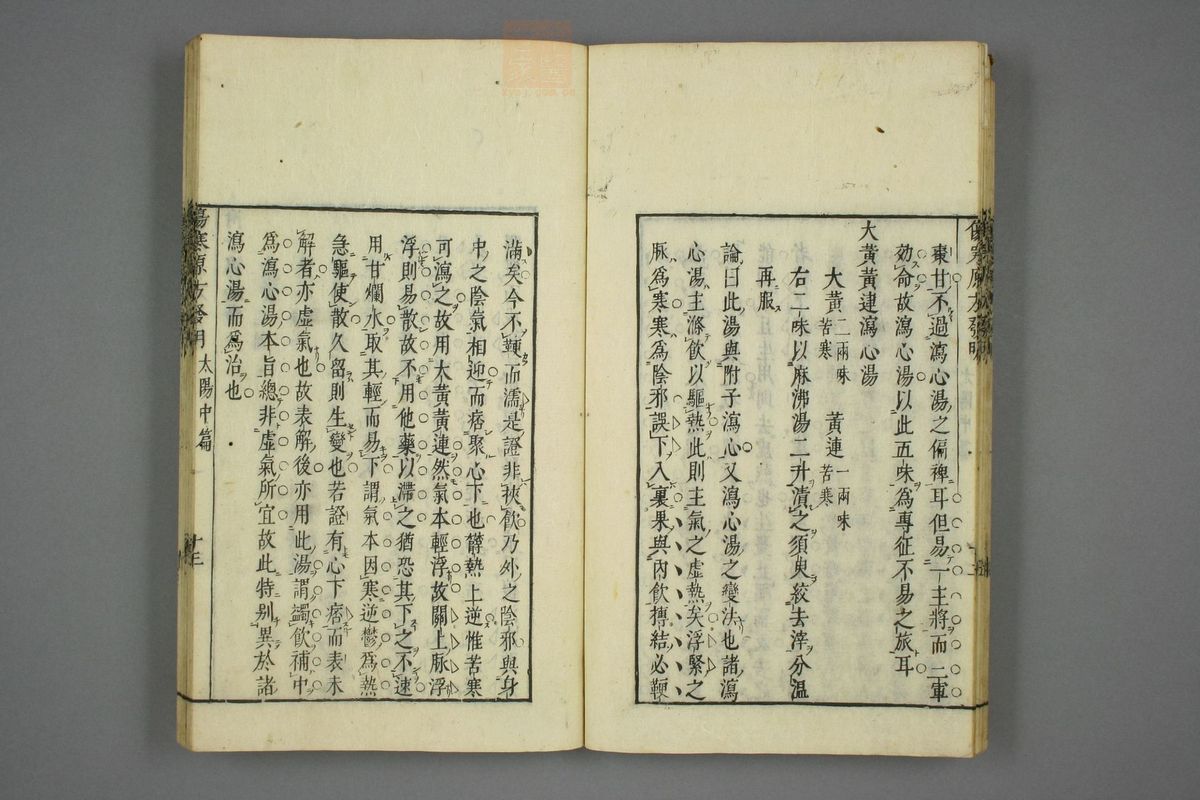 棗甘不過瀉心湯之偏裨耳但易一主將而二軍
効命故瀉心湯以此五味爲專征不易之旅耳
大黃黃連瀉心湯
大黃二兩味苦寒 黃連一兩味苦寒
右二味以麻沸湯二升漬之須臾絞去滓分温
再服
論曰此湯與附子瀉心又瀉心湯之變法也諸瀉
心湯主滌飲以驅熱此則主氣之虛熱矣浮緊之
脉爲寒寒爲陰邪誤下入裏果與內飲摶結必鞕
滿矣今不鞕而濡是證非挾飲乃外之陰邪與身
中之陰氣相迎而痞聚心下也欝熱上逆惟苦寒
可瀉之故用大黃黃連然氣本輕浮故關上脉浮
浮則易散故不用他藥以滯之猶恐其下之不速
用甘爛水取其輕而易下謂氣本因寒逆鬱爲熱
急驅使散久留則生變也若證有心下痞而表未
解者亦虛氣也故表解後亦用此湯謂蠲飲補中
爲瀉心湯本旨總非虛氣所宜故此特別異於諸
瀉心湯而爲治也
傷寒原方發明 太陽中篇 十三